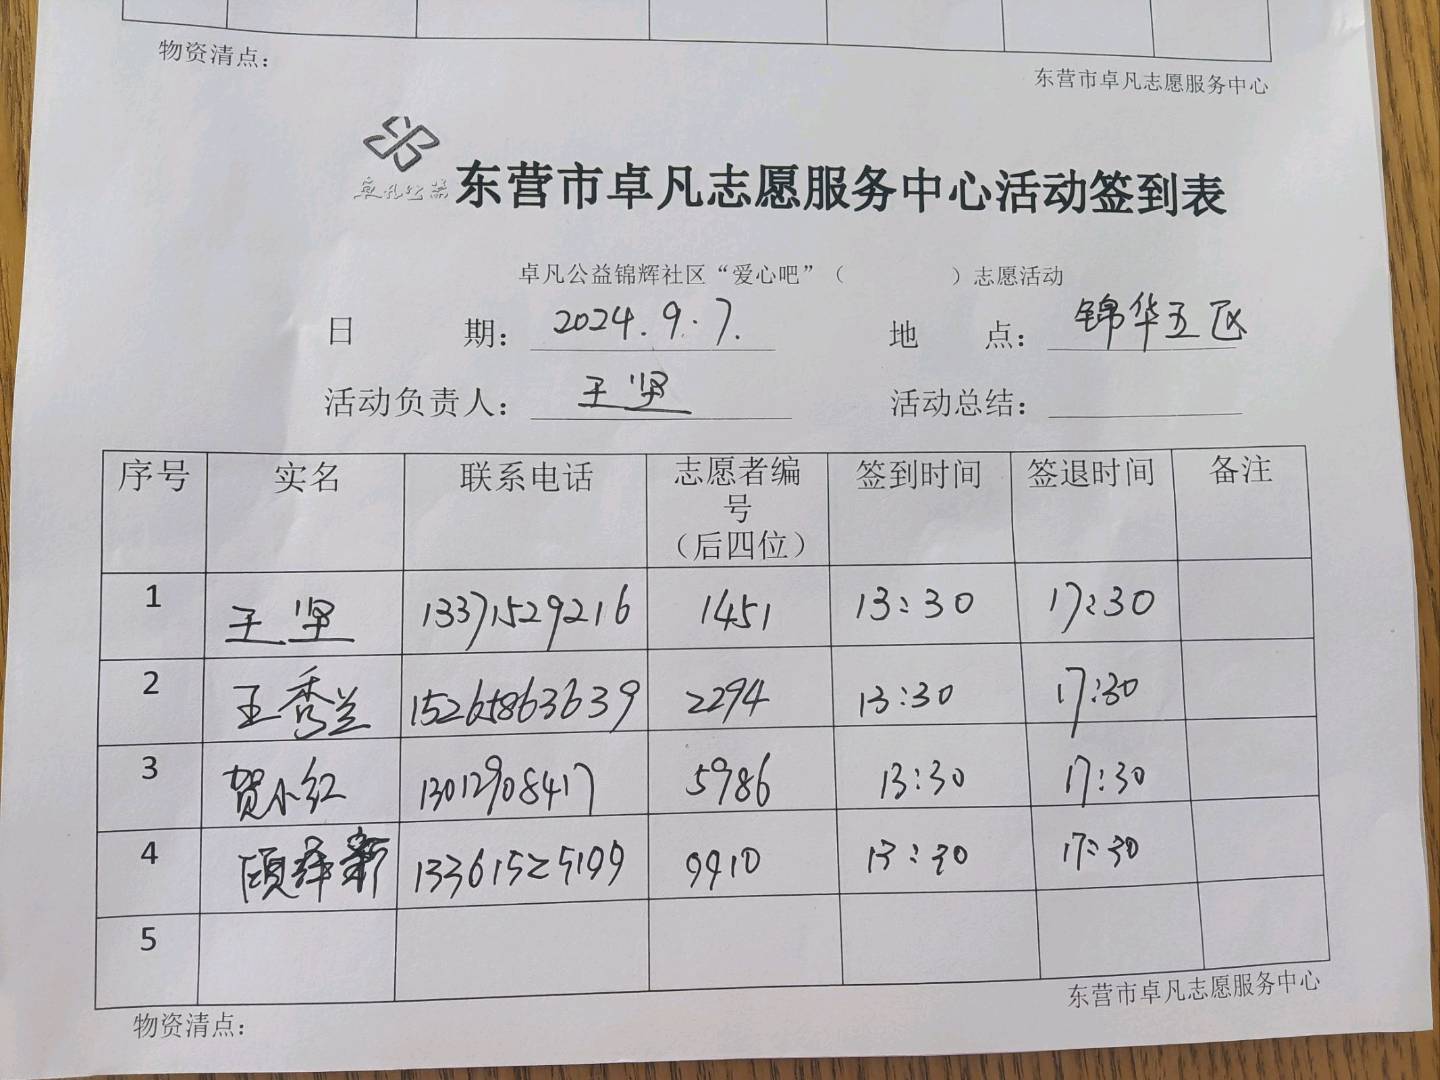 物资清点：
东营市卓凡志愿服务中心
卓凡公益
东营市卓凡志愿服务中心活动签到表
卓凡公益锦辉社区“爱心吧”（ ）志愿活动
日 期： 2024.9.7. 地 点： 锦华五区
活动负责人： 王坚 活动总结：
序号 实名 联系电话 志愿者编号（后四位） 签到时间 签退时间 备注
1 王坚 13371529216 1451 13:30 17:30
2 王秀兰 15265863639 2294 13:30 17:30
3 贺小红 13012908417 5986 13:30 17:30
4 13361525199 9910 13:30 17:30
5
东营市卓凡志愿服务中心
物资清点：